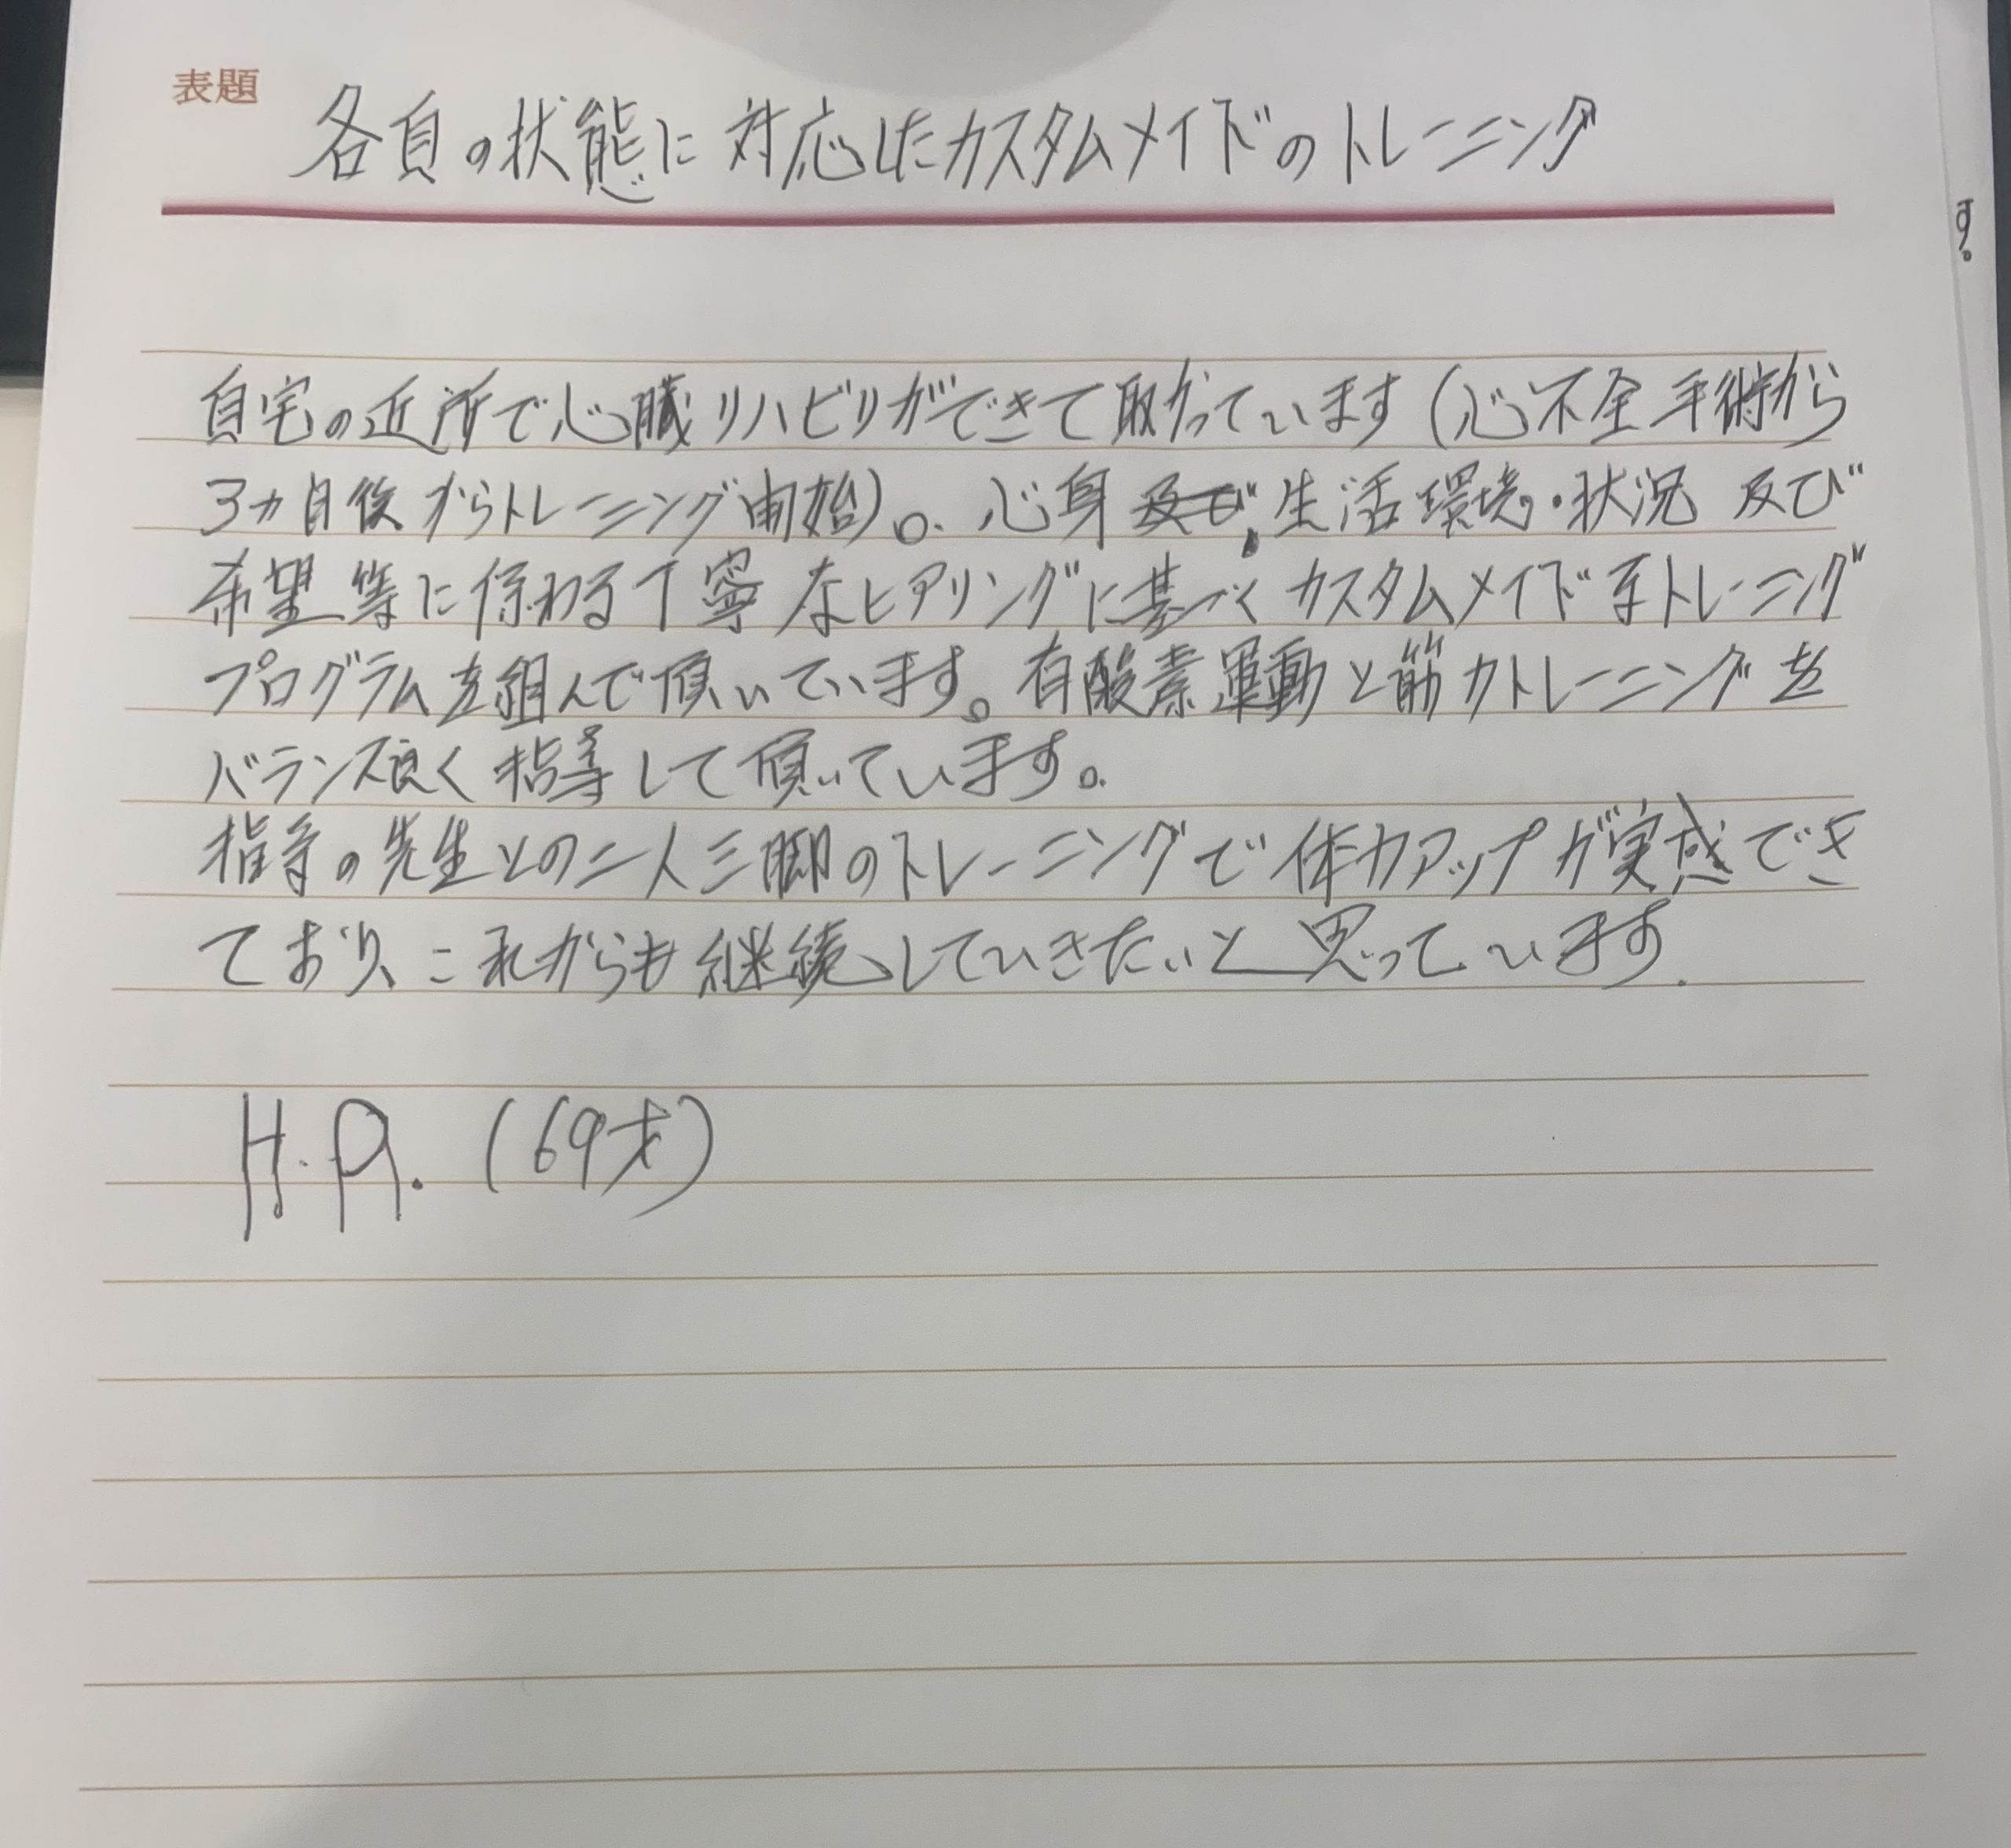 表題
各自の状態に対応したカスタムメイドのトレーニング
す。
自宅の近所で心臓リハビリができて助かっています(心不全手術から
3ヵ月後からトレーニング開始)。心身、生活環境・状況及び
希望等に係わる丁寧なヒアリングに基づくカスタムメイドなトレーニング
プログラムを組んで頂いています。有酸素運動と筋力トレーニングを
バランス良く指導して頂いています。
指導の先生との二人三脚のトレーニングで体力アップが実感でき
ており、これからも継続していきたいと思っています.
H.A.(69才)